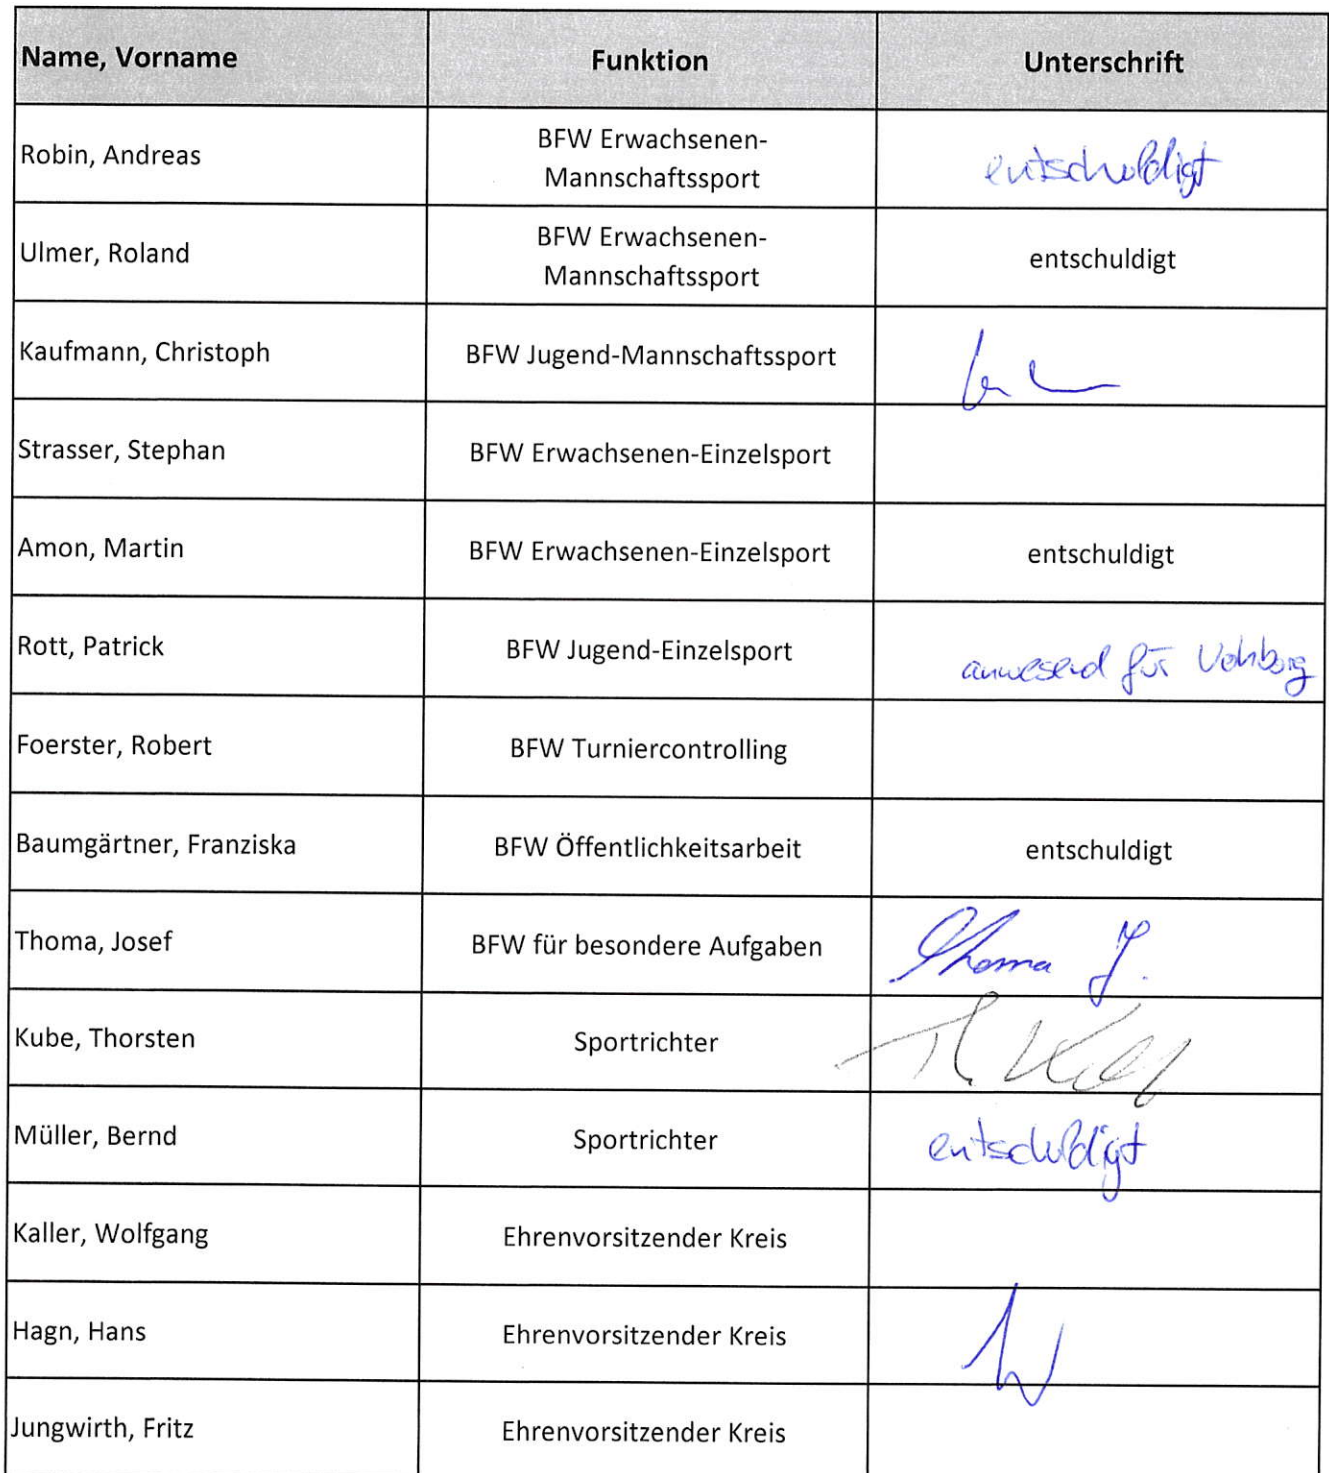 Name, Vorname Funktion Unterschrift
Robin, Andreas BFW Erwachsenen-
Mannschaftssport entschuldigt
Ulmer, Roland BFW Erwachsenen-
Mannschaftssport entschuldigt
Kaufmann, Christoph BFW Jugend-Mannschaftssport
Strasser, Stephan BFW Erwachsenen-Einzelsport
Amon, Martin BFW Erwachsenen-Einzelsport entschuldigt
Rott, Patrick BFW Jugend-Einzelsport anwesend für
Foerster, Robert BFW Turniercontrolling
Baumgärtner, Franziska BFW Öffentlichkeitsarbeit entschuldigt
Thoma, Josef BFW für besondere Aufgaben Thoma J.
Kube, Thorsten Sportrichter
Müller, Bernd Sportrichter entschuldigt
Kaller, Wolfgang Ehrenvorsitzender Kreis
Hagn, Hans Ehrenvorsitzender Kreis
Jungwirth, Fritz Ehrenvorsitzender Kreis